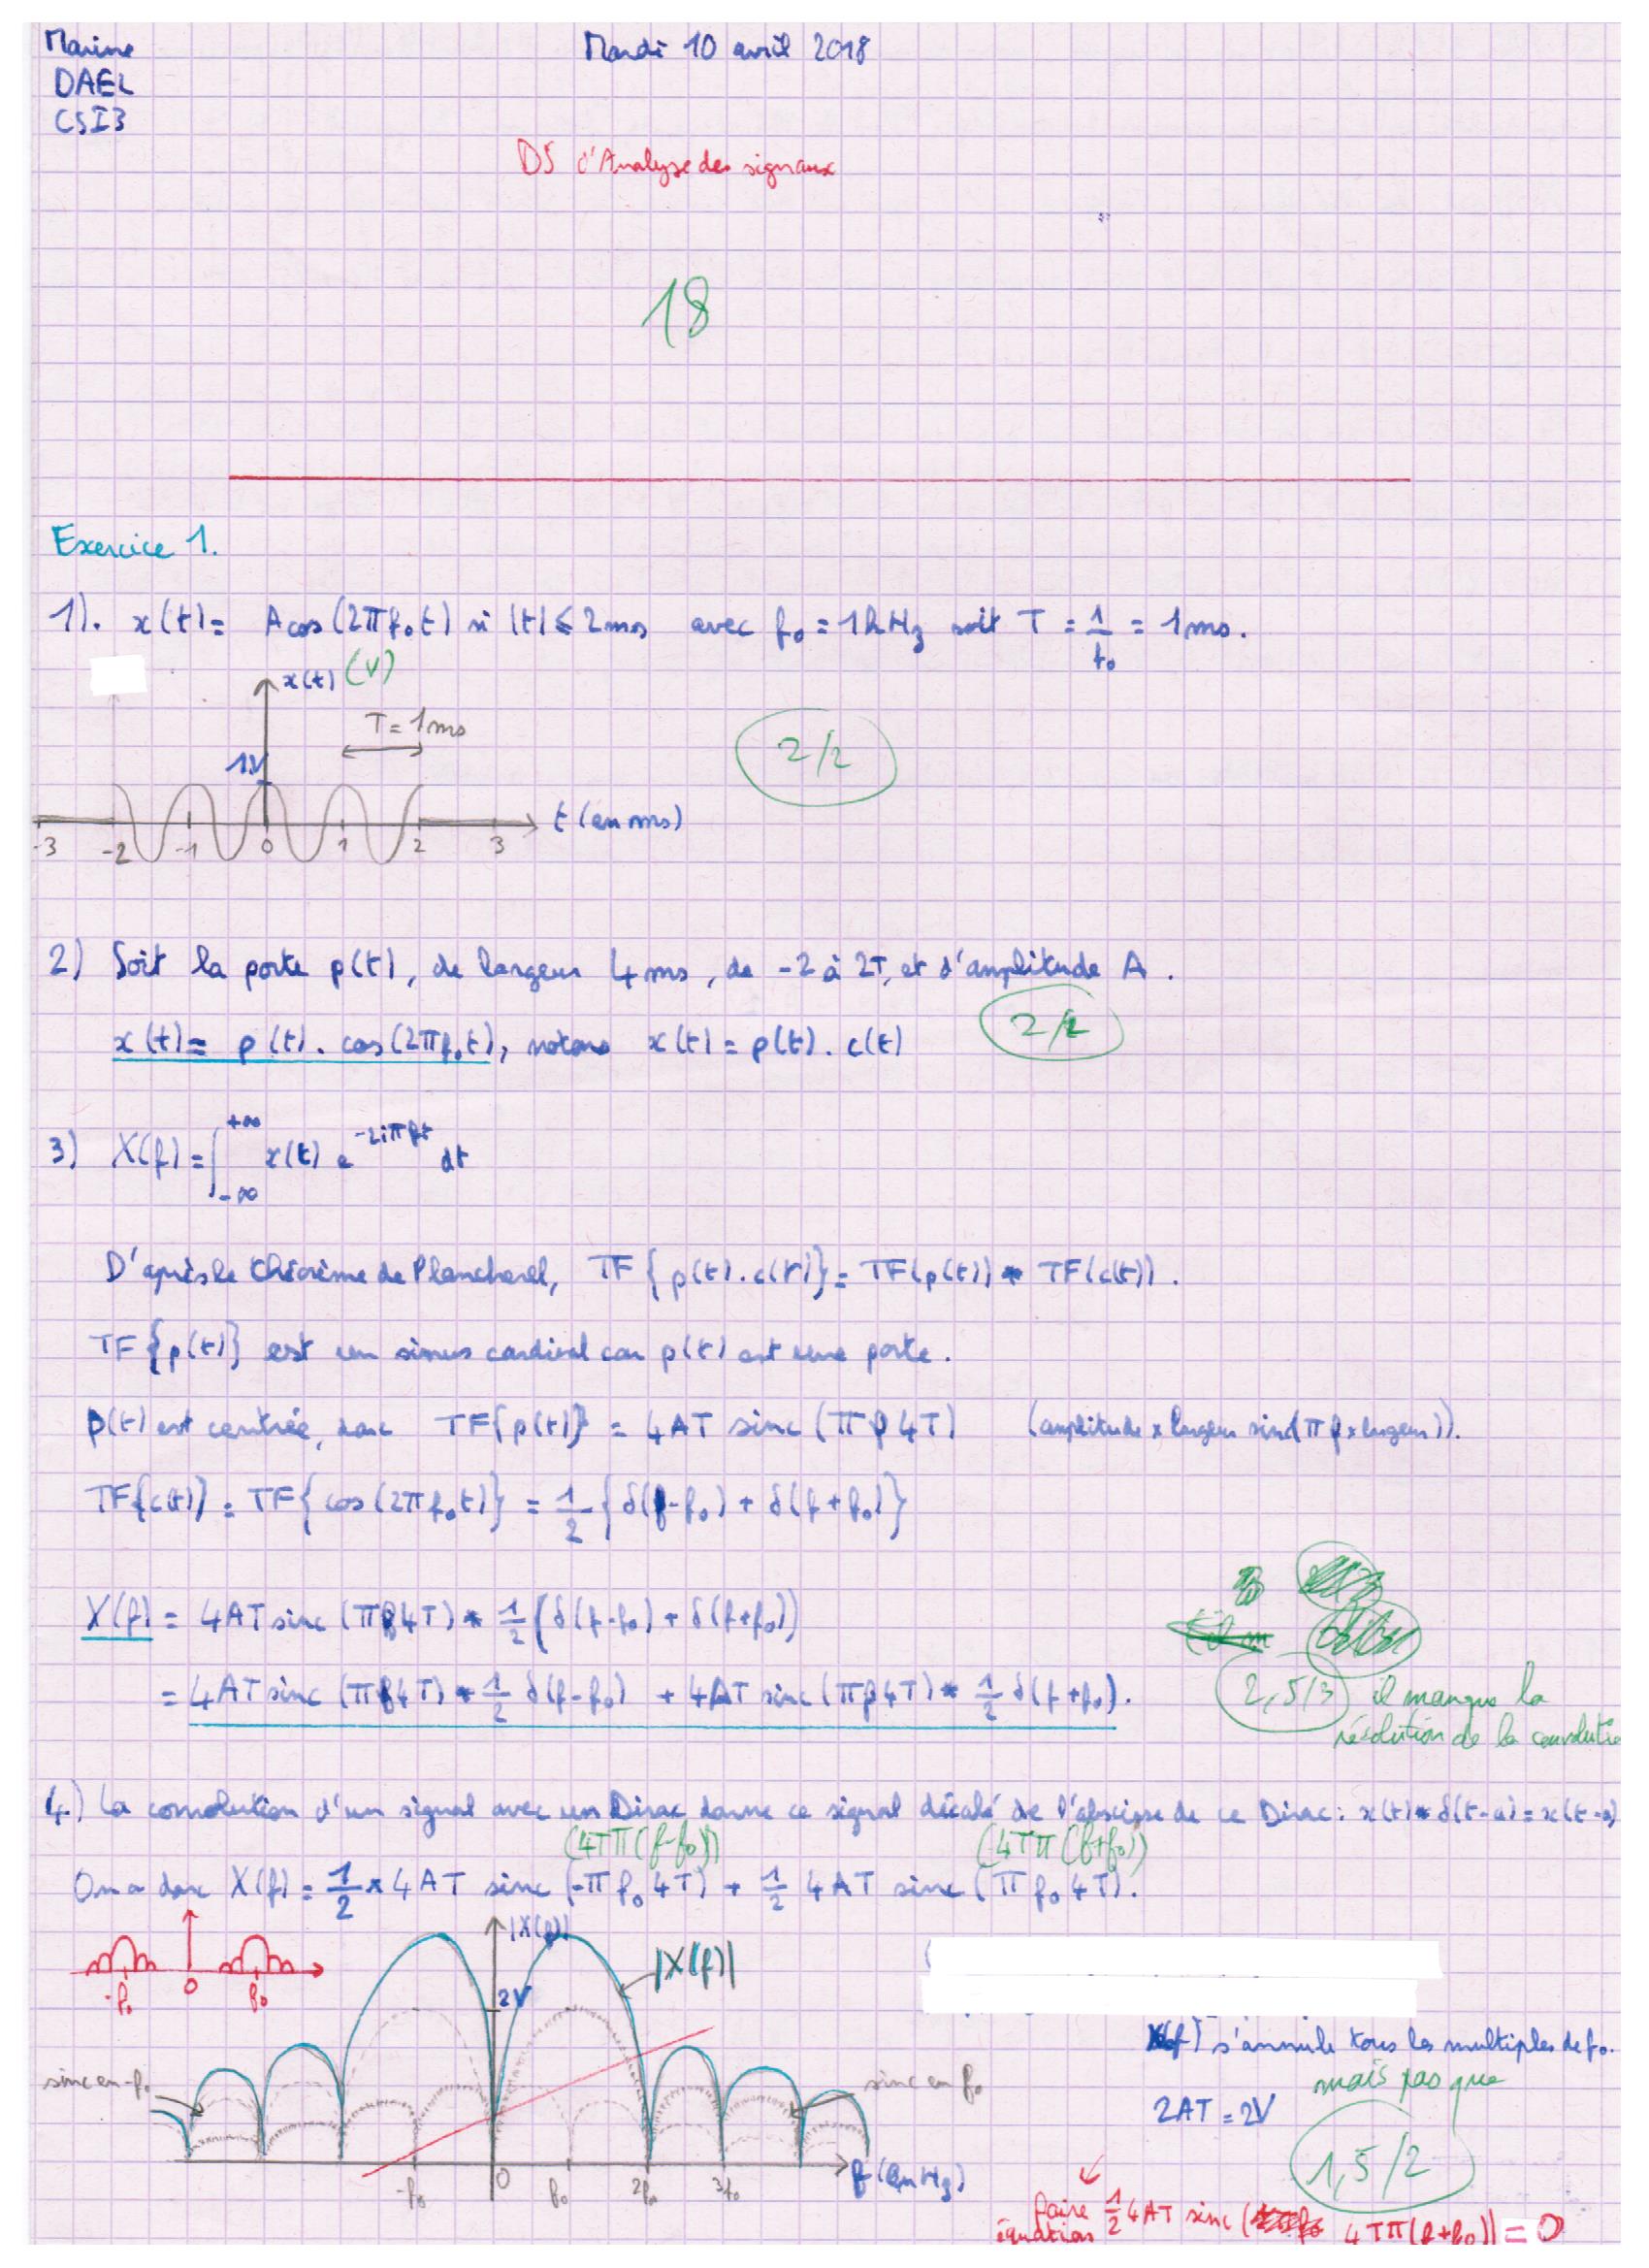 Marine
DAEL
CSI3
Mardi 10 avril 2018
DS d'Analyse des signaux
18
Exercice 1.
1). x(t) = A cos(2πf₀t) si |t| ≤ 2ms avec f₀ = 1kHz soit T = 1/f₀ = 1ms.
x(t) (V)
T = 1ms
1V
2/2
-3 -2 -1 0 1 2 3 t (en ms)
2) Soit la porte p(t), de largeur 4ms, de -2 à 2T, et d'amplitude A.
x(t) = p(t). cos(2πf₀t), notons x(t) = p(t). c(t)
2/2
3) X(f) = ∫_{-∞}^{+∞} x(t) e^{-2iπft} dt
D'après le théorème de Plancherel, TF{p(t).c(t)} = TF(p(t)) * TF(c(t)).
TF{p(t)} est un sinus cardinal car p(t) est une porte.
p(t) est centrée, donc TF{p(t)} = 4AT sinc(πf4T) (amplitude x largeur sinc(πf x largeur)).
TF{c(t)} = TF{cos(2πf₀t)} = 1/2 {δ(f-f₀) + δ(f+f₀)}
X(f) = 4AT sinc(πf4T) * 1/2 (δ(f-f₀) + δ(f+f₀))
= 4AT sinc(πf4T) * 1/2 δ(f-f₀) + 4AT sinc(πf4T) * 1/2 δ(f+f₀).
2,5/3 il manque la
résolution de la convolutio
4.) La convolution d'un signal avec un Dirac donne ce signal décalé de l'abscisse de ce Dirac: x(t)*δ(t-a)=x(t-a)
(4Tπ(f-f₀)) (4Tπ(f+f₀))
On a donc X(f) = 1/2 x 4AT sinc(-πf₀4T) + 1/2 4AT sinc(πf₀4T).
|X(f)|
|X(f)|
-f₀ 0 f₀
2V
X(f) s'annule tous les multiples de f₀.
mais pas que
sinc en -f₀
sinc en f₀
2AT = 2V
1,5/2
-f₀ 0 f₀ 2f₀ 3f₀ f (en Hz)
faire 1/2 4AT sinc( 4Tπ(f+f₀)) = 0
équation